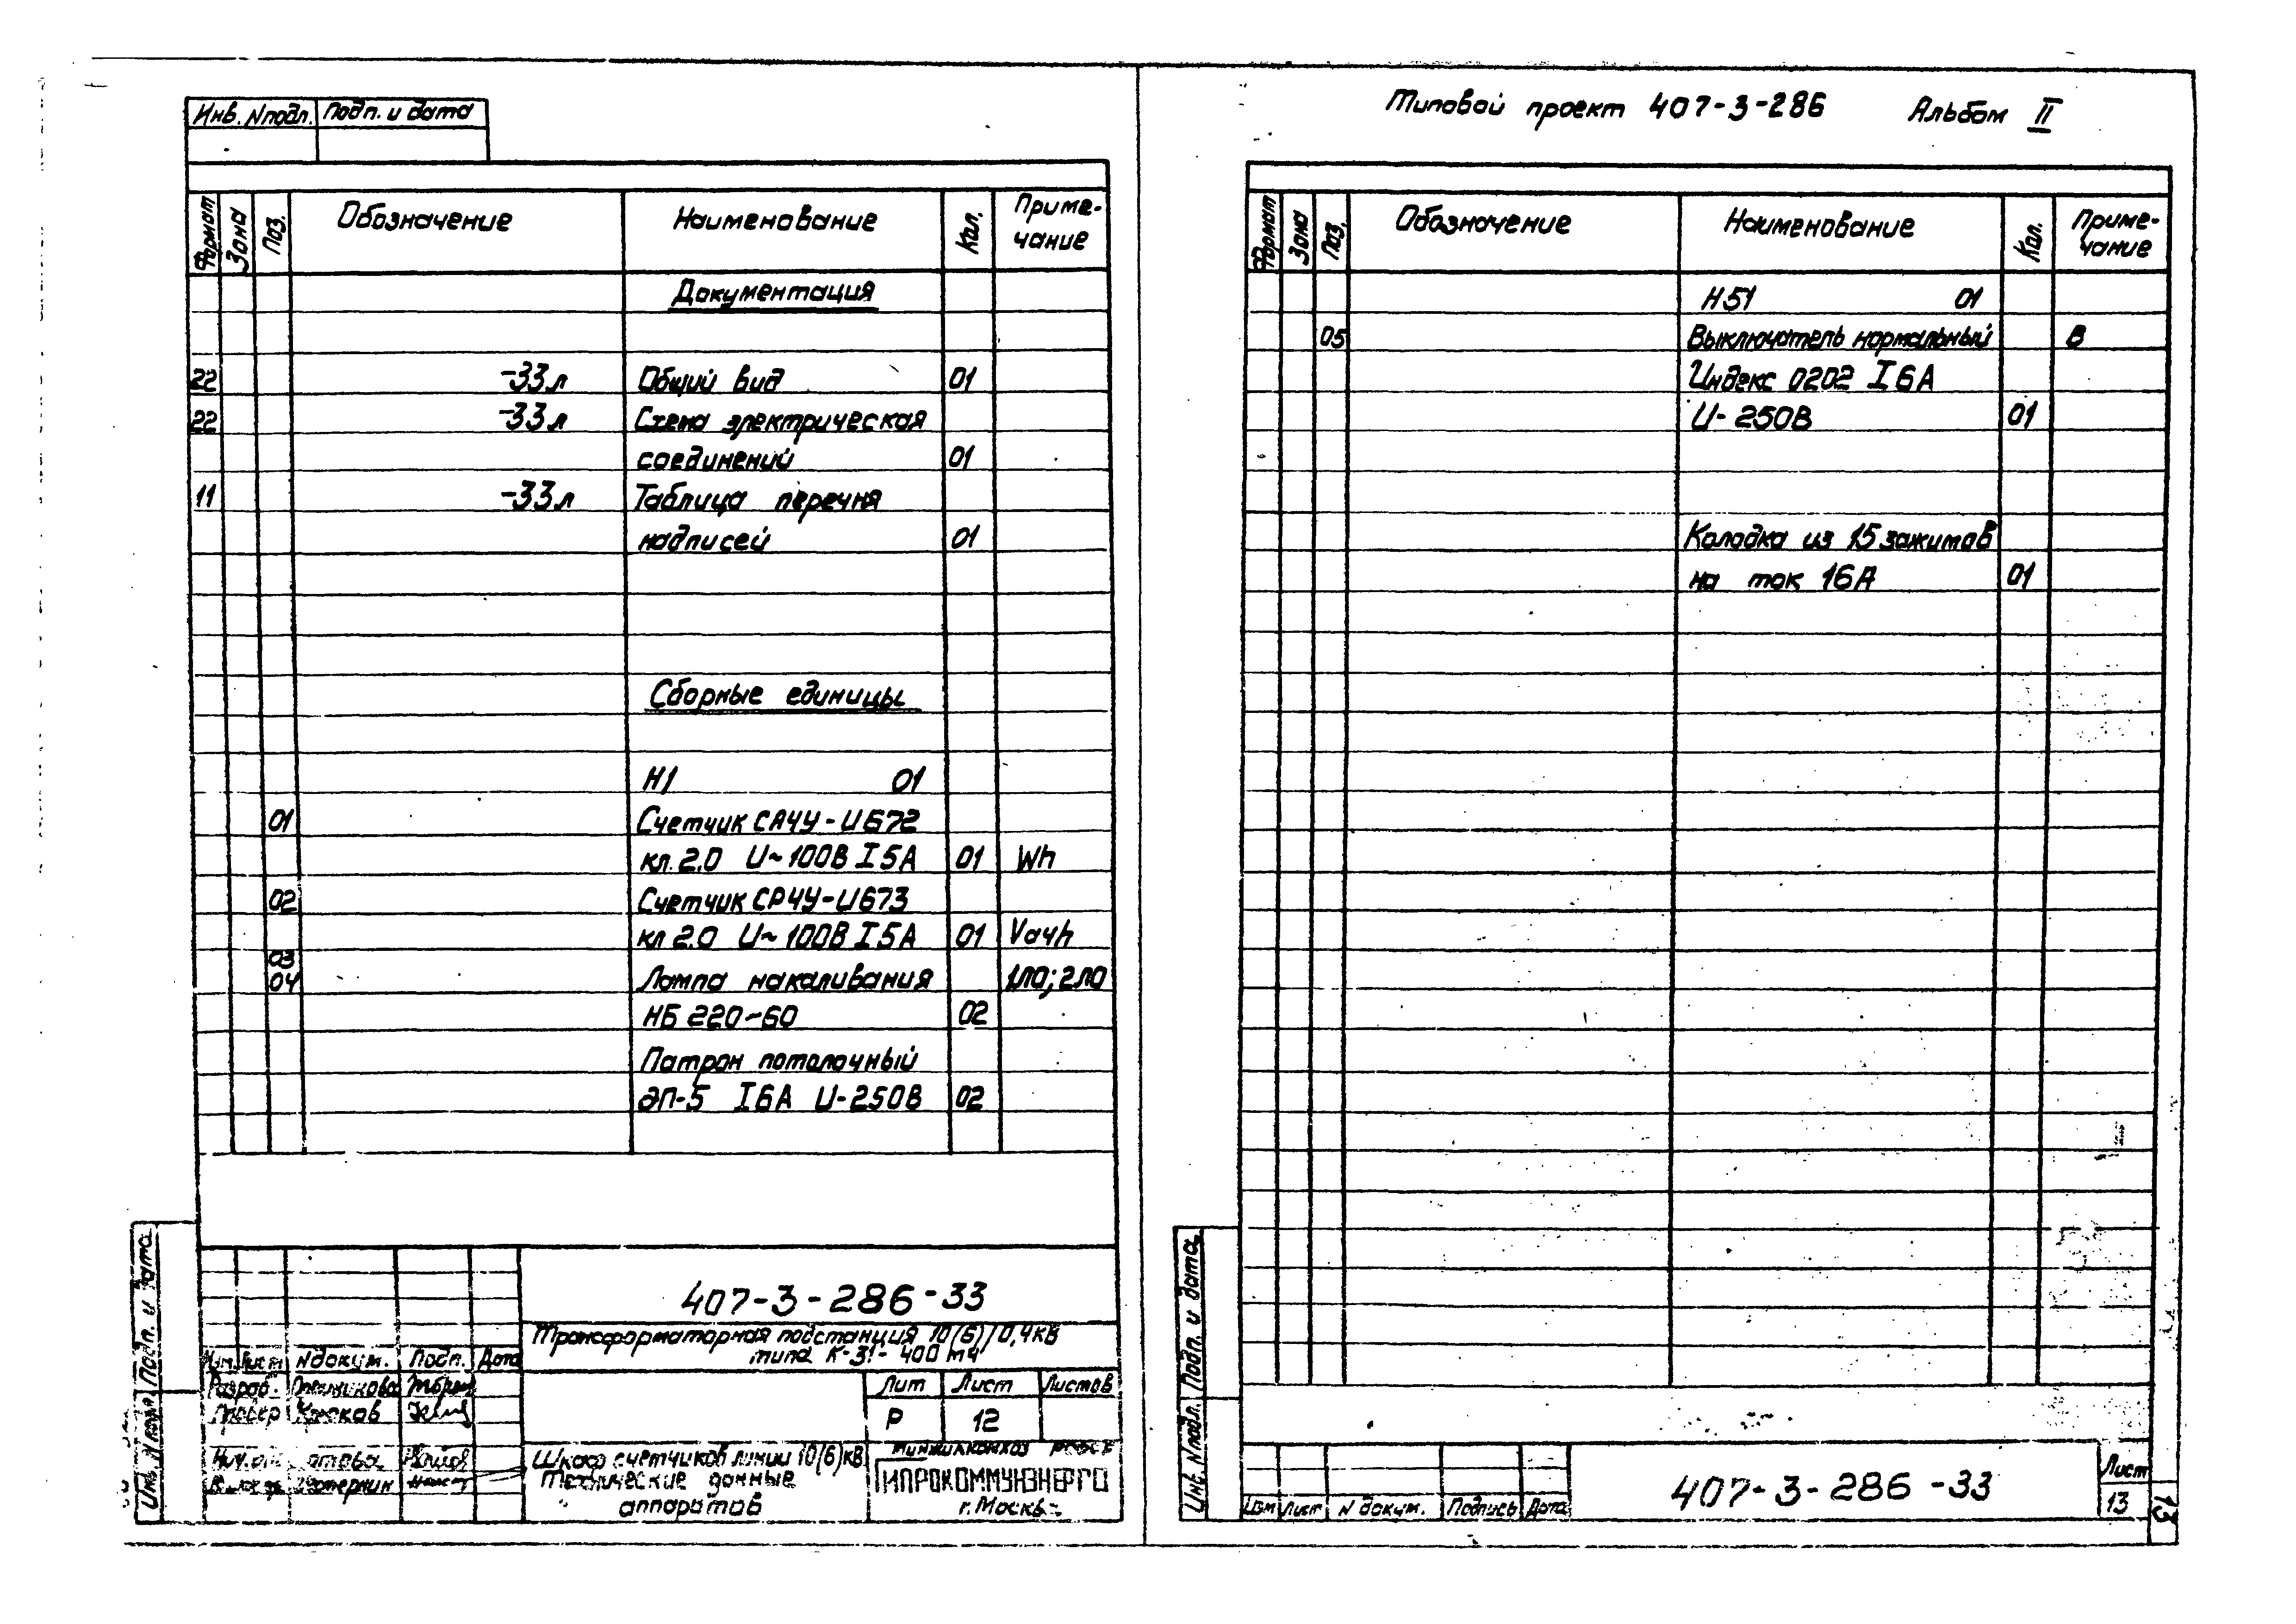 Инв. N подл. Подп. и дата
Формат Зона Поз. Обозначение Наименование Кол. Приме-
чание
Документация
22 -33л Общий вид 01
22 -33л Схема электрическая
соединений 01
11 -33л Таблица перечня
надписей 01
Сборные единицы
Н1 01
01 Счетчик СА4У-И672
кл. 2.0 U~100В I 5А 01 Wh
02 Счетчик СР4У-И673
кл 2.0 U~100В I 5А 01 Vaчh
03
04 Лампа накаливания 1ло; 2ло
НБ 220-60 02
Патрон потолочный
ЭП-5 I 6А U-250В 02
407-3-286-33
Трансформаторная подстанция 10(6)/0,4кв
типа К-31-400 м4
Лист N докум. Подп. Дата
Разраб.
Лит Лист Листов
Р 12
Шкаф счетчиков линии 10(6)кв
Технические данные
аппаратов
Минжилкомхоз РСФСР
ГИПРОКОММУНЭНЕРГО
г. Москва
Инв. N подл. Подп. и дата
Типовой проект 407-3-286 Альбом II
Формат Зона Поз. Обозначение Наименование Кол. Приме-
чание
Н51 01
05 Выключатель нормальный В
Индекс 0202 I 6А
U-250В 01
Колодка из 15 зажимов
на ток 16А 01
Инв. N подл. Подп. и дата
Изм Лист N докум. Подпись Дата
407-3-286-33
Лист
13
13